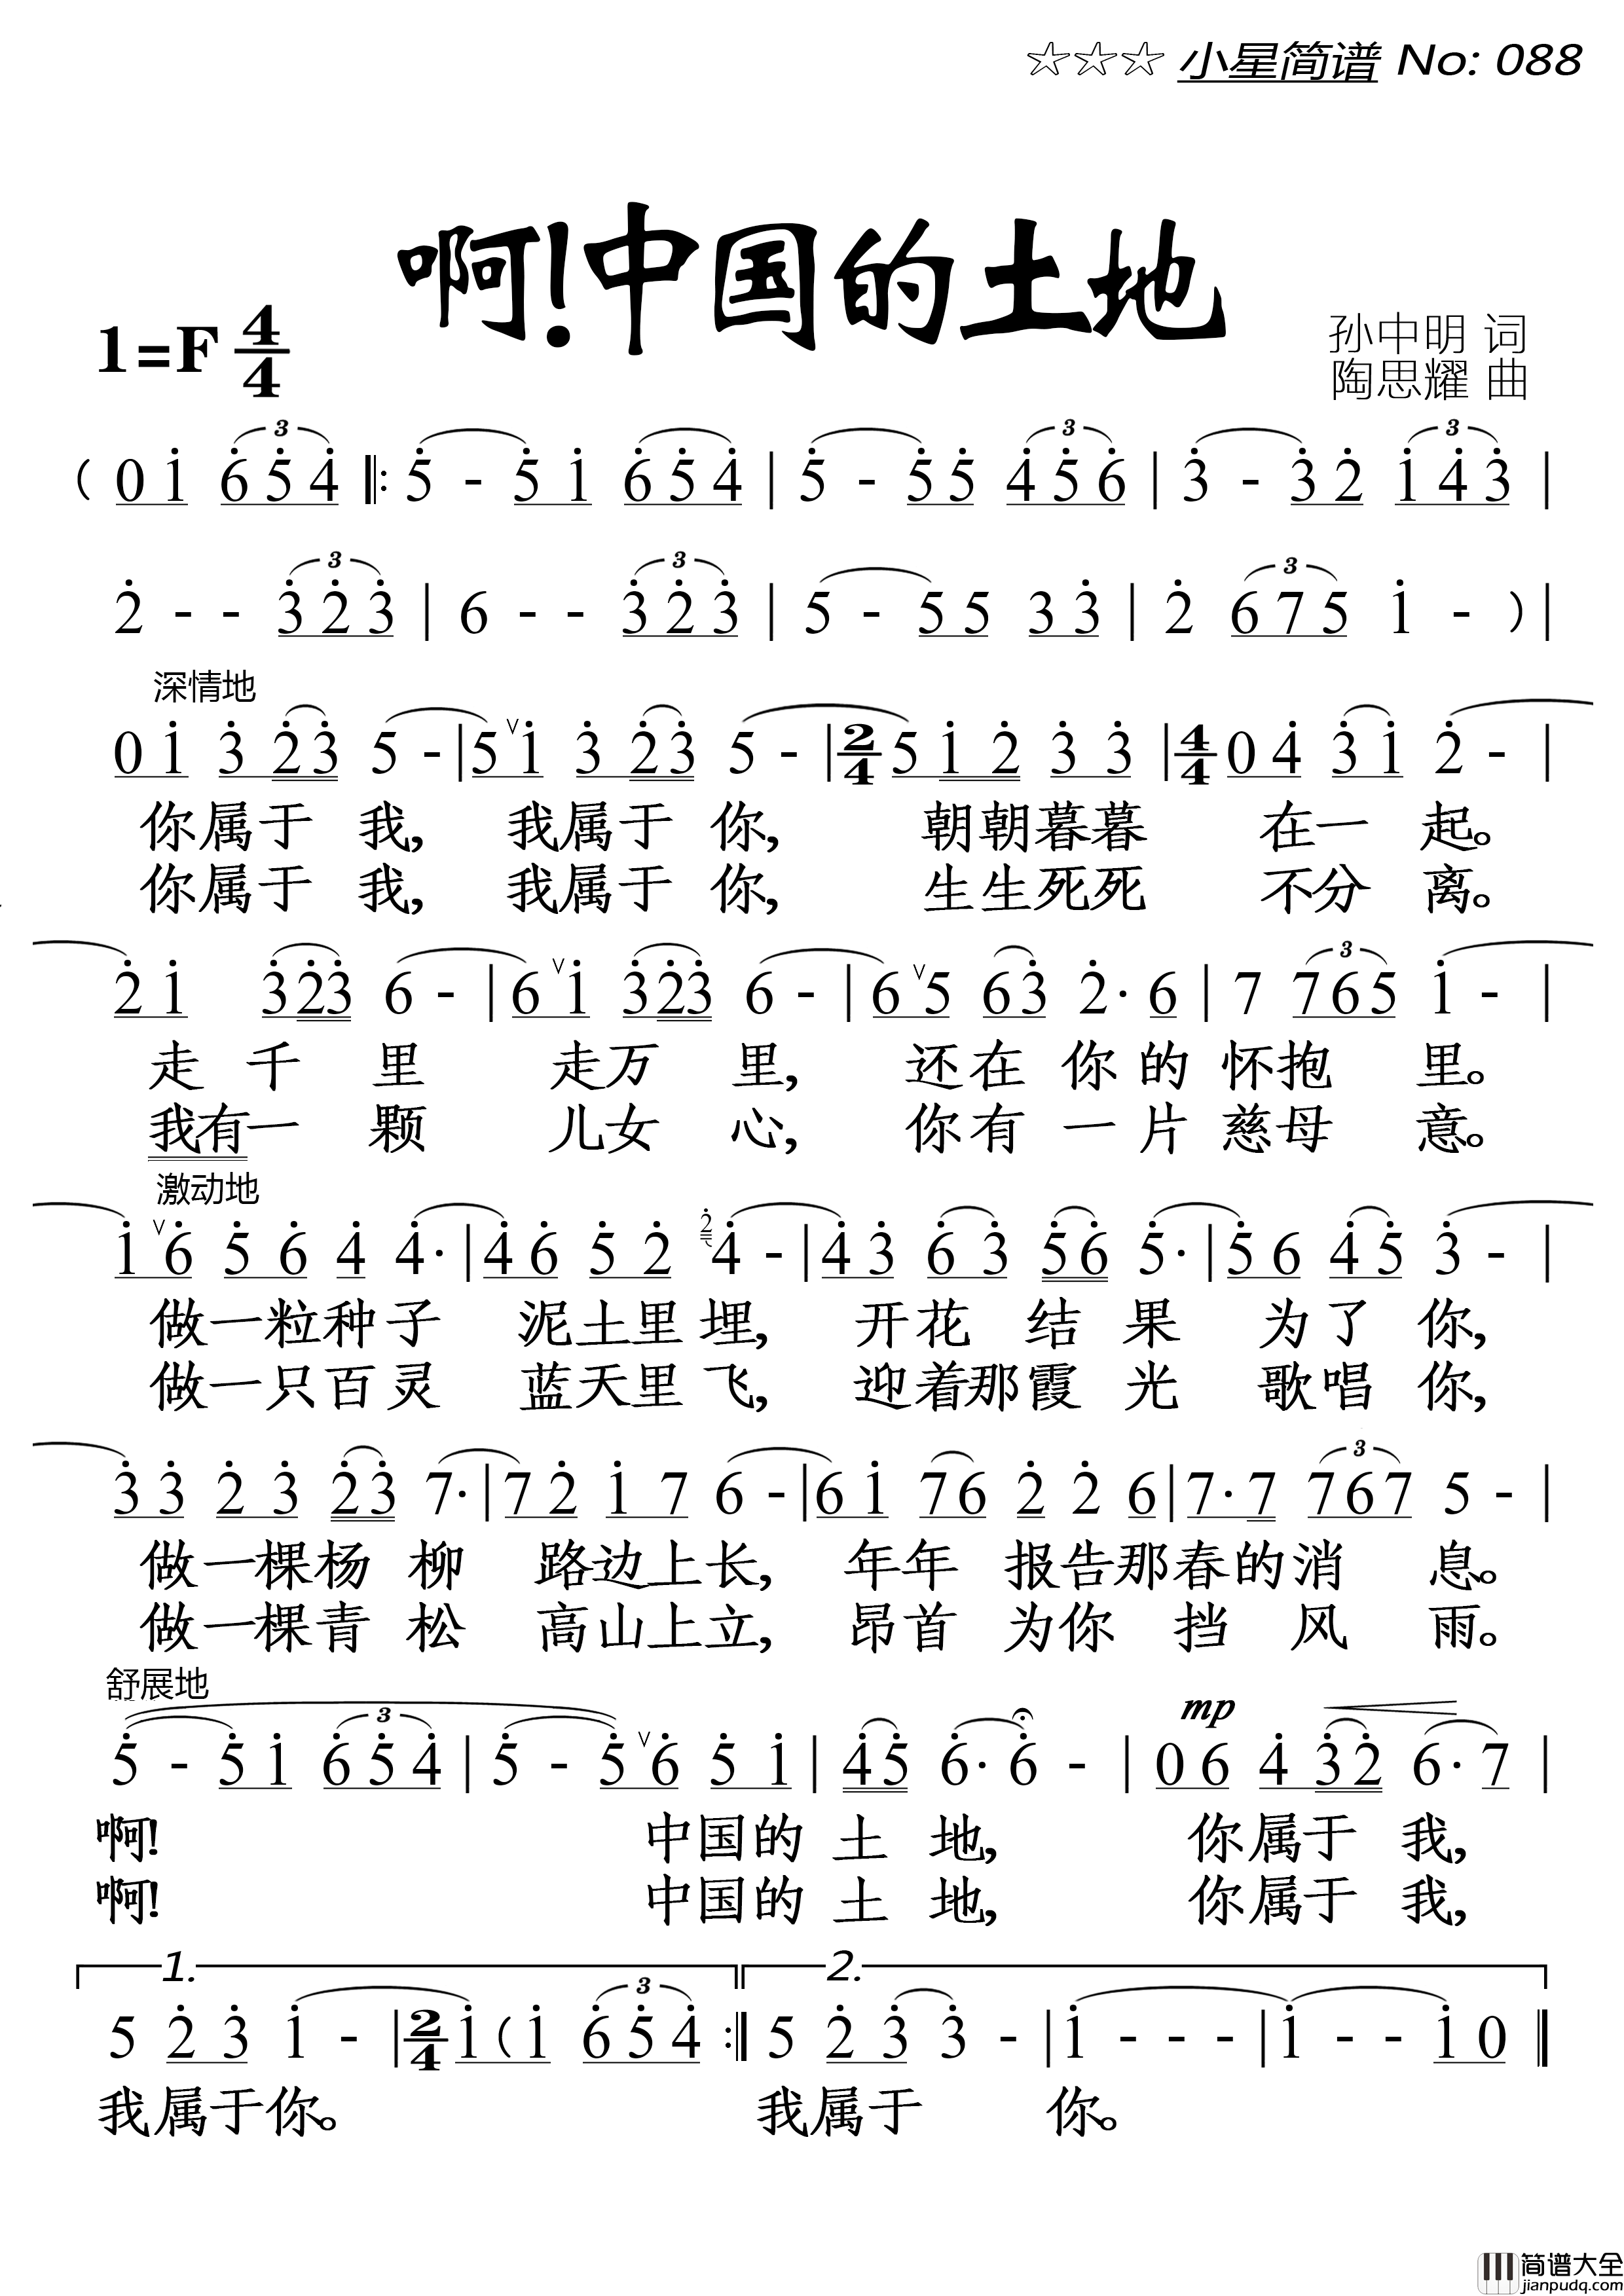 ☆☆☆ 小星简谱 No: 088
啊!中国的土地
1=F 4/4
孙中明 词
陶思耀 曲
( 0 1 6 5 4 ‖: 5 - 5 1 6 5 4 | 5 - 5 5 4 5 6 | 3 - 3 2 1 4 3 |
2 - - 3 2 3 | 6 - - 3 2 3 | 5 - 5 5 3 3 | 2 6 7 5 1 - ) |
深情地
0 1 3 2 3 5 - | 5 1 3 2 3 5 - | 2/4 5 1 2 3 3 | 4/4 0 4 3 1 2 - |
你属于 我, 我属于 你, 朝朝暮暮 在一 起。
你属于 我, 我属于 你, 生生死死 不分 离。
2 1 3 2 3 6 - | 6 1 3 2 3 6 - | 6 5 6 3 2· 6 | 7 7 6 5 1 - |
走 千 里 走万 里, 还在 你的 怀抱 里。
我有一 颗 儿女 心, 你有 一片 慈母 意。
激动地
1 6 5 6 4 4· | 4 6 5 2 2 4 - | 4 3 6 3 5 6 5· | 5 6 4 5 3 - |
做一粒种子 泥土里埋, 开花 结 果 为了 你,
做一只百灵 蓝天里飞, 迎着那霞 光 歌唱 你,
3 3 2 3 2 3 7· | 7 2 1 7 6 - | 6 1 7 6 2 2 6 | 7· 7 7 6 7 5 - |
做一棵杨 柳 路边上长, 年年 报告那春的消 息。
做一棵青 松 高山上立, 昂首 为你 挡 风 雨。
舒展地
mp
5 - 5 1 6 5 4 | 5 - 5 6 5 1 | 4 5 6· 6 - | 0 6 4 3 2 6· 7 |
啊! 中国的 土 地, 你属于 我,
啊! 中国的 土 地, 你属于 我,
1. 2.
5 2 3 1 - | 2/4 1 ( 1 6 5 4 :‖ 5 2 3 3 - | 1 - - - | 1 - - 1 0 ‖
我属于你。 我属于 你。
简谱大全
jianpudq.com